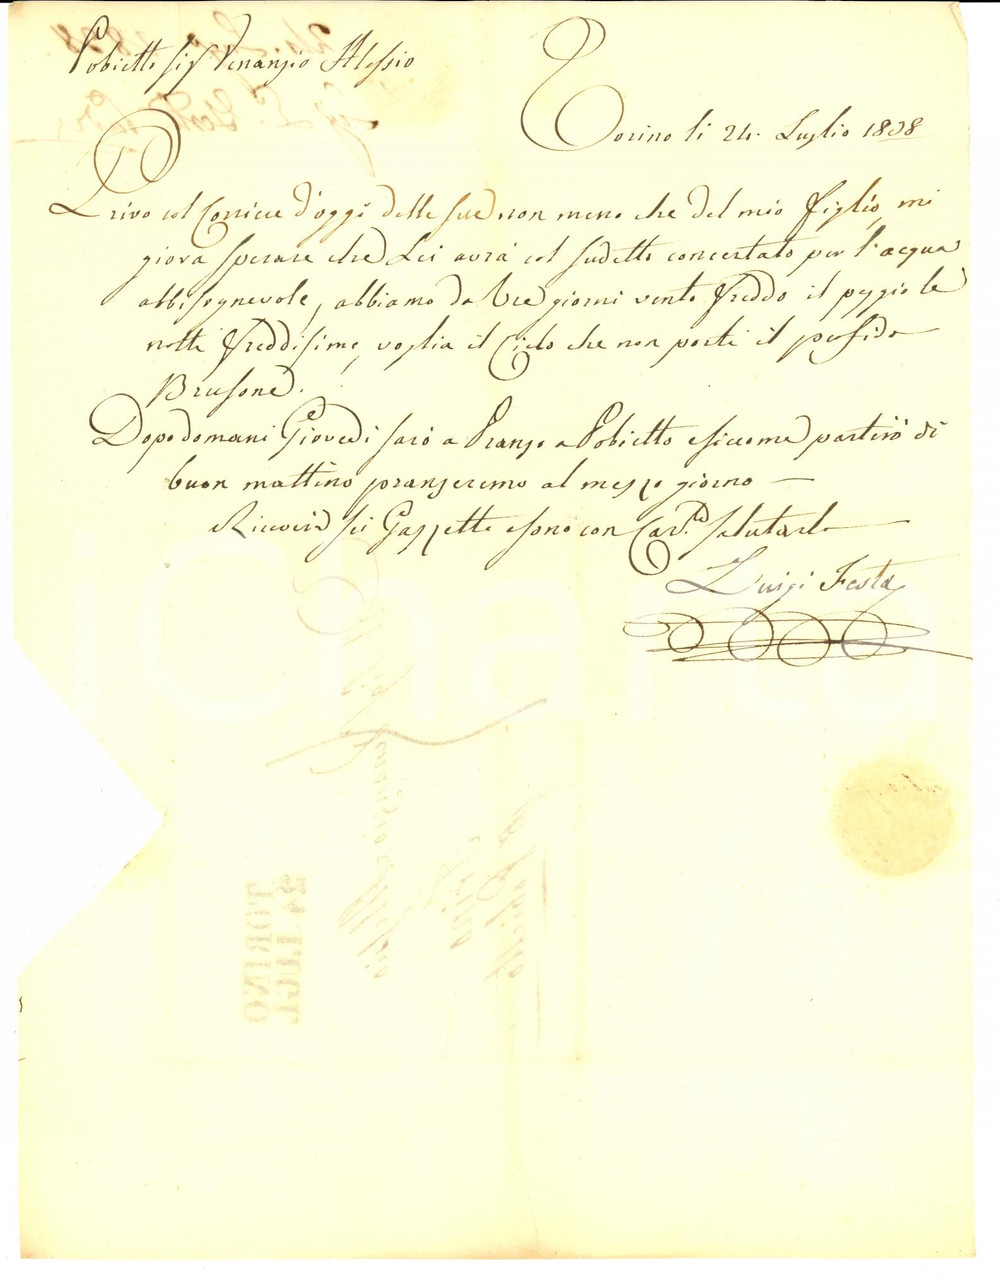 Pobietto Sigr Venanzio Alessio
Torino li 24. Luglio 1838
Privo col Corriere d'oggi delle sue non meno che del mio figlio, mi
giova sperare che Lei avrà col sudetto concertato per l'acqua
abbisognevole, abbiamo da tre giorni vento freddo il peggio le
notti freddisime, voglia il Cielo che non porti il perfido
Brusone.
Dopodomani Giovedi sarò a Pranzo a Pobietto e siccome partirò di
buon mattino pranzeremo al mezzo giorno —
Riceverà sei Gazzette e sono con Car.tà salutarla
Luigi Festa
TORINO
24 LUGL
iCharta